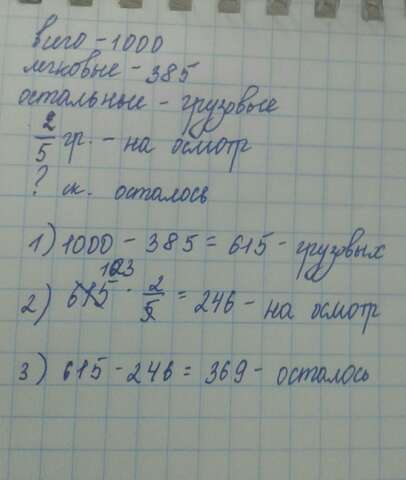 всего - 1000
легковые - 385
остальные - грузовые
2/5 гр. - на осмотр
? ск. осталось
1) 1000 - 385 = 615 - грузовых
123
2) 615 · 2/5 = 246 - на осмотр
3) 615 - 246 = 369 - осталось